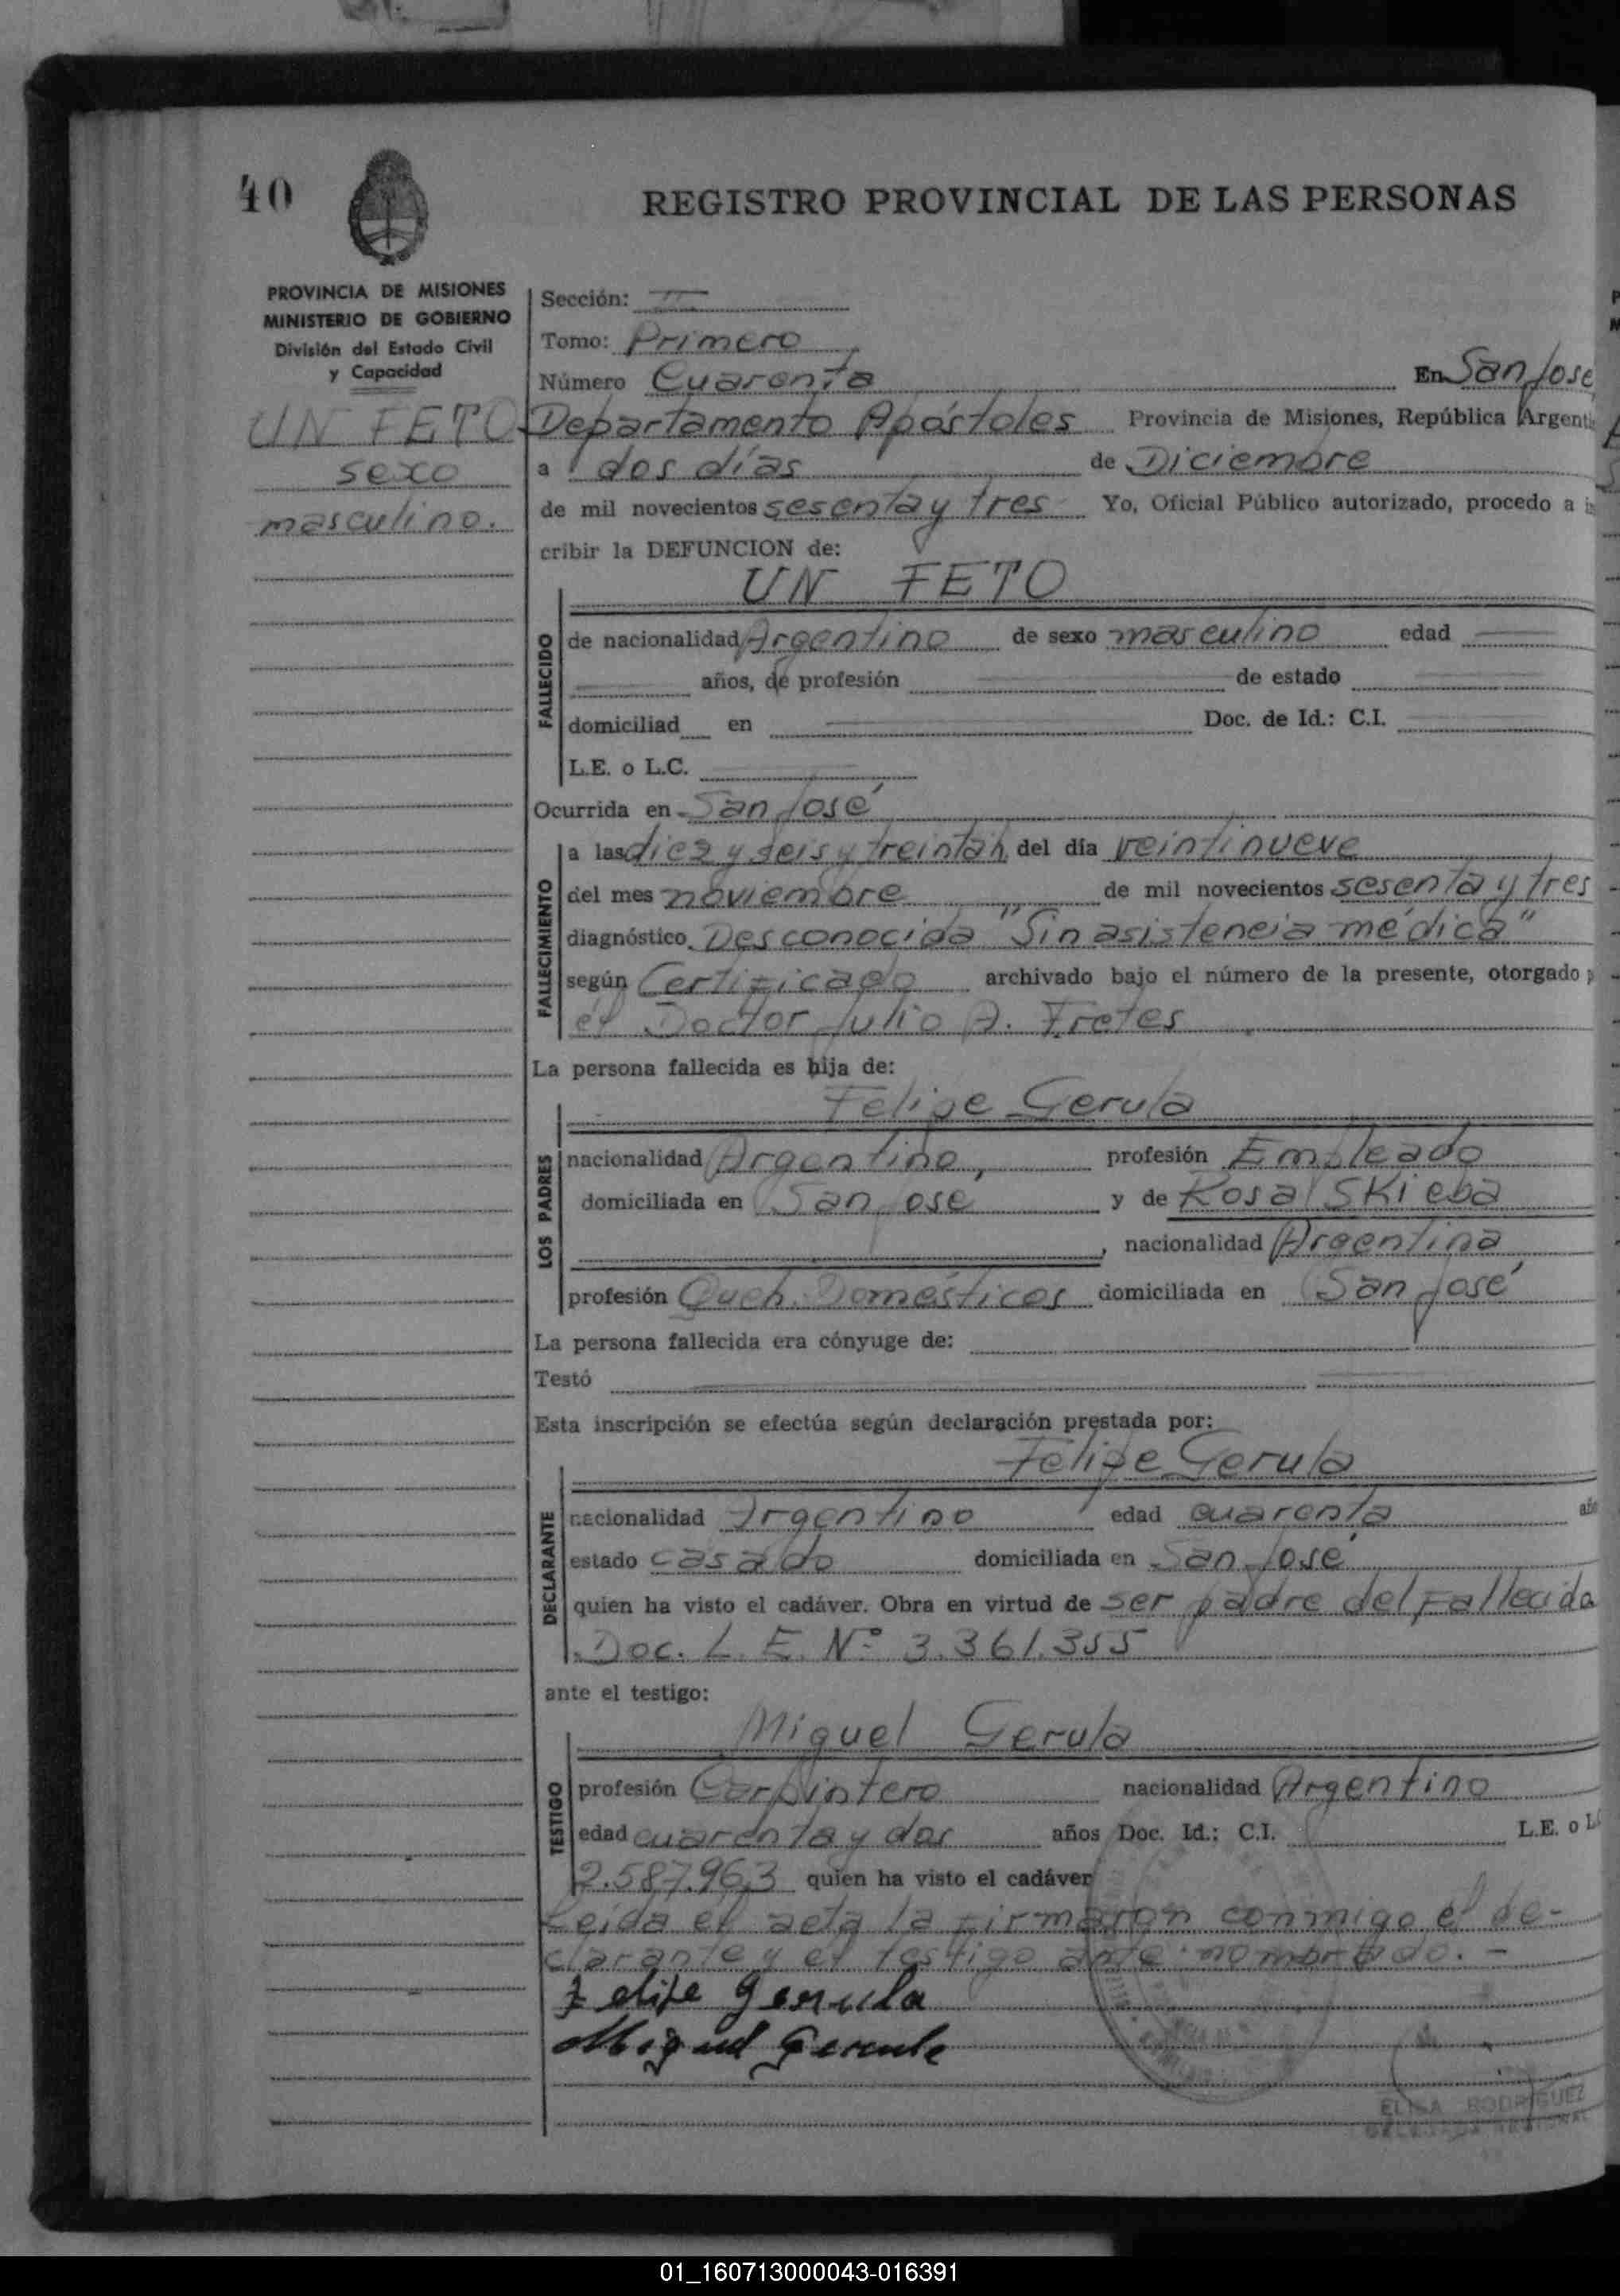 40
REGISTRO PROVINCIAL DE LAS PERSONAS
PROVINCIA DE MISIONES
MINISTERIO DE GOBIERNO
División del Estado Civil
y Capacidad
UN FETO
sexo
masculino.
Sección: II
Tomo: Primero
Número Cuarenta En San José
Departamento Apóstoles Provincia de Misiones, República Argenti
a dos días de Diciembre
de mil novecientos sesenta y tres Yo, Oficial Público autorizado, procedo a
cribir la DEFUNCION de:
UN FETO
FALLECIDO
de nacionalidad Argentino de sexo masculino edad
años, de profesión de estado
domiciliad en Doc. de Id.: C.I.
L.E. o L.C.
Ocurrida en San José
FALLECIMIENTO
a las diez y seis y treinta h. del día veintinueve
del mes noviembre de mil novecientos sesenta y tres
diagnóstico Desconocida "Sin asistencia médica"
según Certificado archivado bajo el número de la presente, otorgado p
el Doctor Julio A. Fretes
La persona fallecida es hija de:
Felipe Gerula
LOS PADRES
nacionalidad Argentino, profesión Empleado
domiciliada en San José y de Rosa Skieba
, nacionalidad Argentina
profesión Queh. Domésticos domiciliada en San José
La persona fallecida era cónyuge de:
Testó
Esta inscripción se efectúa según declaración prestada por:
Felipe Gerula
DECLARANTE
nacionalidad Argentino edad cuarenta añ
estado casado domiciliada en San José
quien ha visto el cadáver. Obra en virtud de ser padre del Fallecido
Doc. L. E. Nº 3.361.355
ante el testigo:
Miguel Gerula
TESTIGO
profesión Carpintero nacionalidad Argentino
edad cuarenta y dos años Doc. Id.: C.I. L.E. o L
2.587.963 quien ha visto el cadáver
Leída el acta la firmaron conmigo el de-
clarante y el testigo ante nombrado. -
Felipe Gerula
Miguel Gerula
ELISA RODRIGUEZ
01_160713000043-016391